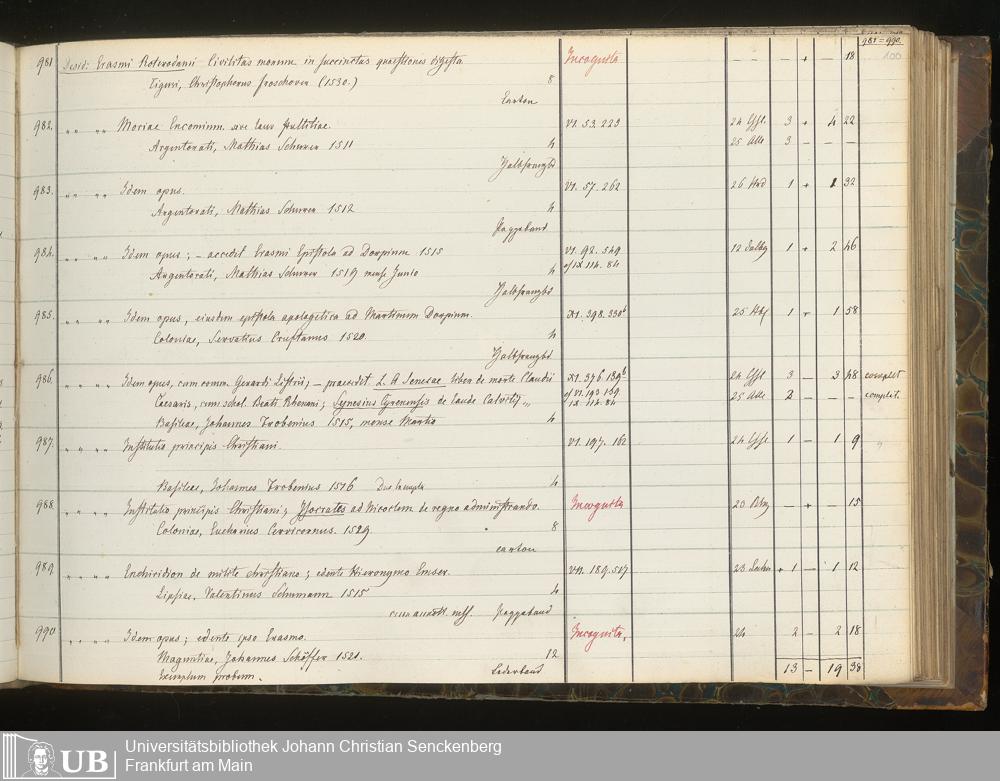 981 = 990.
981 Desid: Erasmi Roterodami Civilitas morum in succinctas quaestiones digesta Incognita - - - + - 18 100
Tiguri, Christophorus Froschover (1530.) 8
Carton
982. " " " " Moriae Encomium sive laus stultitiae. VI. 53. 223 24 3 + 4 22
Argentorati, Mathias Schurer 1511 4 25 3 - - -
Halbfranzbd
983. " " " " Idem opus. VI. 57. 262 26 1 + 1 32
Argentorati, Mathias Schurer 1512 4
Pappband
984. " " " " Idem opus; – accedit Erasmi Epistola ad Dorpium 1515 VI. 92. 549 12 Dalbg 1 + 2 46
Argentorati, Mathias Schurer 1519 mense Junio 4 cf IX 114. 84
Halbfranzbd
985. " " " " Idem opus, eiusdem epistola apologetica ad Martinum Dorpium. XI. 398. 350 25 1 + 1 58
Coloniae, Servatius Cruftanus 1520. 4
Halbfranzbd
986. " " " " Idem opus, cum comm. Gerardi Listrii; – praecedit L. A Senecae liber de morte Claudii XI. 376. 189 24 3 – 3 48 complet
Caesaris, cum schol. Beati Rhenani; Synesius Cyrenensis de laude Calvitii „ cf VI. 193 139. 25 2 - - - complet.
IX. 114. 84
Basileae, Johannes Frobenius 1515, mense Martio 4
987. " " " " Institutio principis Christiani. VI. 197. 162 24 1 – 1 9 9
Basileae, Johannes Frobenius 1516 4
988. " " " " Institutio principis Christiani; Isocrates ad Nicoclem de regno administrando. Incognita 23 – + – 15
Coloniae, Eucharius Cervicornus. 1529. 8
carton
989. " " " " Enchiridion de milite christiano; edente Hieronymo Emser. VII. 189. 517 23 + 1 – 1 12
Lipsiae, Valentinus Schumann 1515 4
cum mss. Pappband
990 " " " " Idem opus; edente ipso Erasmo. Incognita. 24 2 – 2 18
Moguntiae, Johannes Schöffer 1521. 12
Exemplum probum. Lederband 13 – 19 38
UB
Universitätsbibliothek Johann Christian Senckenberg
Frankfurt am Main